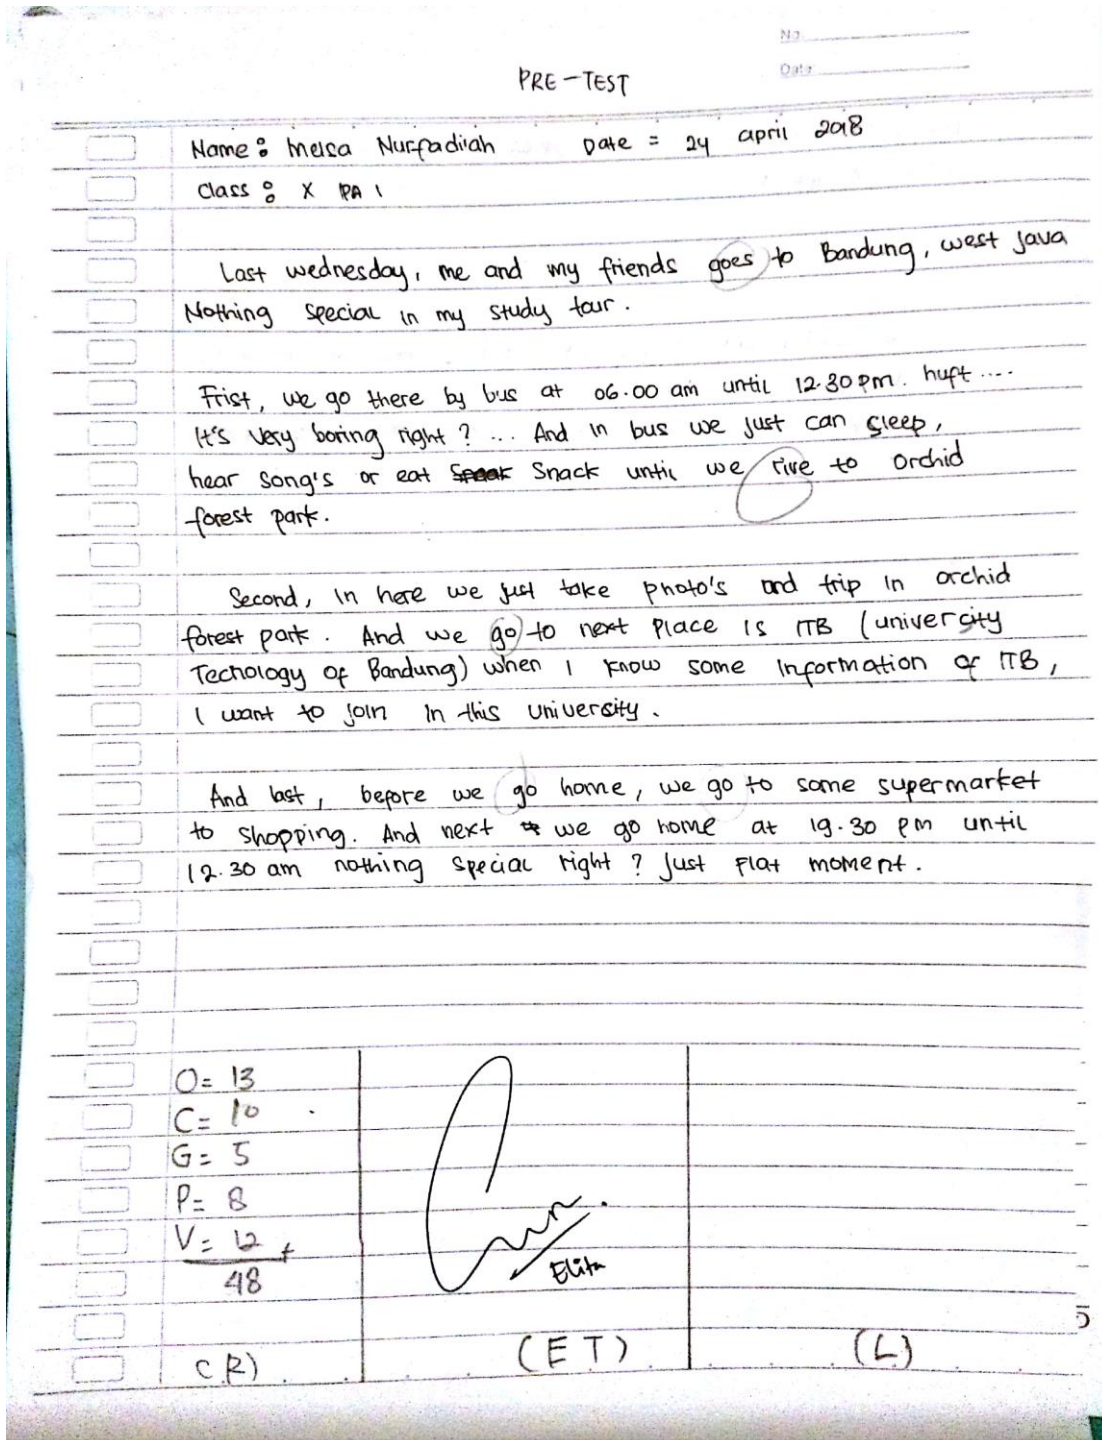 No
Date
PRE-TEST
Name : Meisa Nurfadilah Date = 24 april 2018
Class : X IPA 1
Last wednesday, me and my friends goes to Bandung, west java
Nothing special in my study tour.
Frist, we go there by bus at 06.00 am until 12.30 pm. huft ....
It's very boring right ? ... And in bus we just can sleep,
hear song's or eat Snack until we rive to orchid
forest park.
Second, in here we just take photo's and trip in orchid
forest park. And we go to next place is ITB (univercity
Technology of Bandung) when I know some information of ITB,
I want to join in this university.
And last, before we go home, we go to some supermarket
to shopping. And next we go home at 19.30 pm until
12.30 am nothing special right ? Just flat moment.
O= 13
C= 10
G= 5
P= 8
V= 12 +
48
Elita
5
(R) (ET) (L)